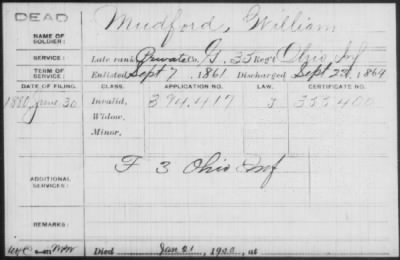 DEAD
NAME OF SOLDIER: Mudford, William
SERVICE: Late rank Private Co. G. 35 Reg't Ohio Inf
TERM OF SERVICE: Enlisted Sept 7, 1861 Discharged Sept 22, 1864
DATE OF FILING. CLASS. APPLICATION NO. LAW. CERTIFICATE NO.
1880 June 30 Invalid, 394.417 J 355400
Widow,
Minor,
ADDITIONAL SERVICES: F 3 Ohio Inf
REMARKS:
Died Jan 21, 1920, at